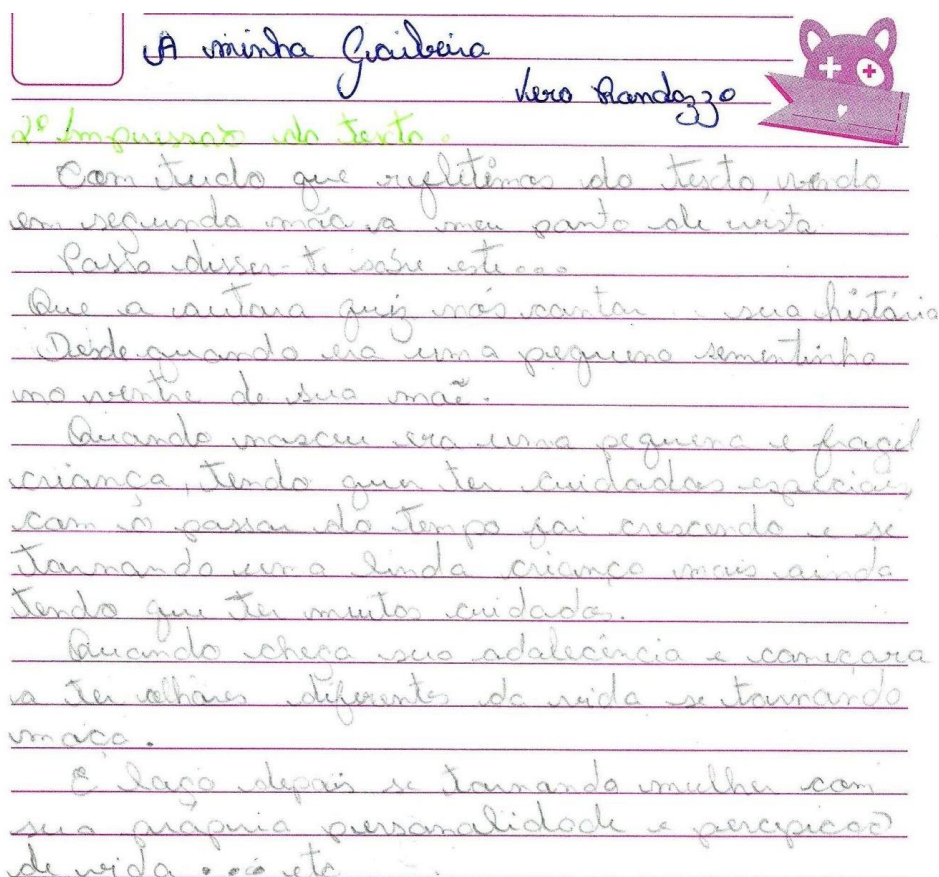 A minha Goiabeira
Vero Randazzo
2º Impressão do texto.
Com tudo que refletimos do texto, vendo
em segunda mão a meu ponto de vista
Posso disser-te sobre este...
Que a autora quiz nós contar sua história
Desde quando era uma pequena sementinha
no ventre de sua mãe.
Quando nasceu era uma pequena e fragil
criança, tendo que ter cuidados especiais,
com o passar do tempo foi crescendo e se
tornando uma linda criança mais ainda
tendo que ter muitos cuidados.
Quando chega sua adolecência e começara
a ter olhares diferentes da vida se tornando
moça.
E logo depois se tornando mulher com
sua própria personalidade e percepição
de vida ... etc